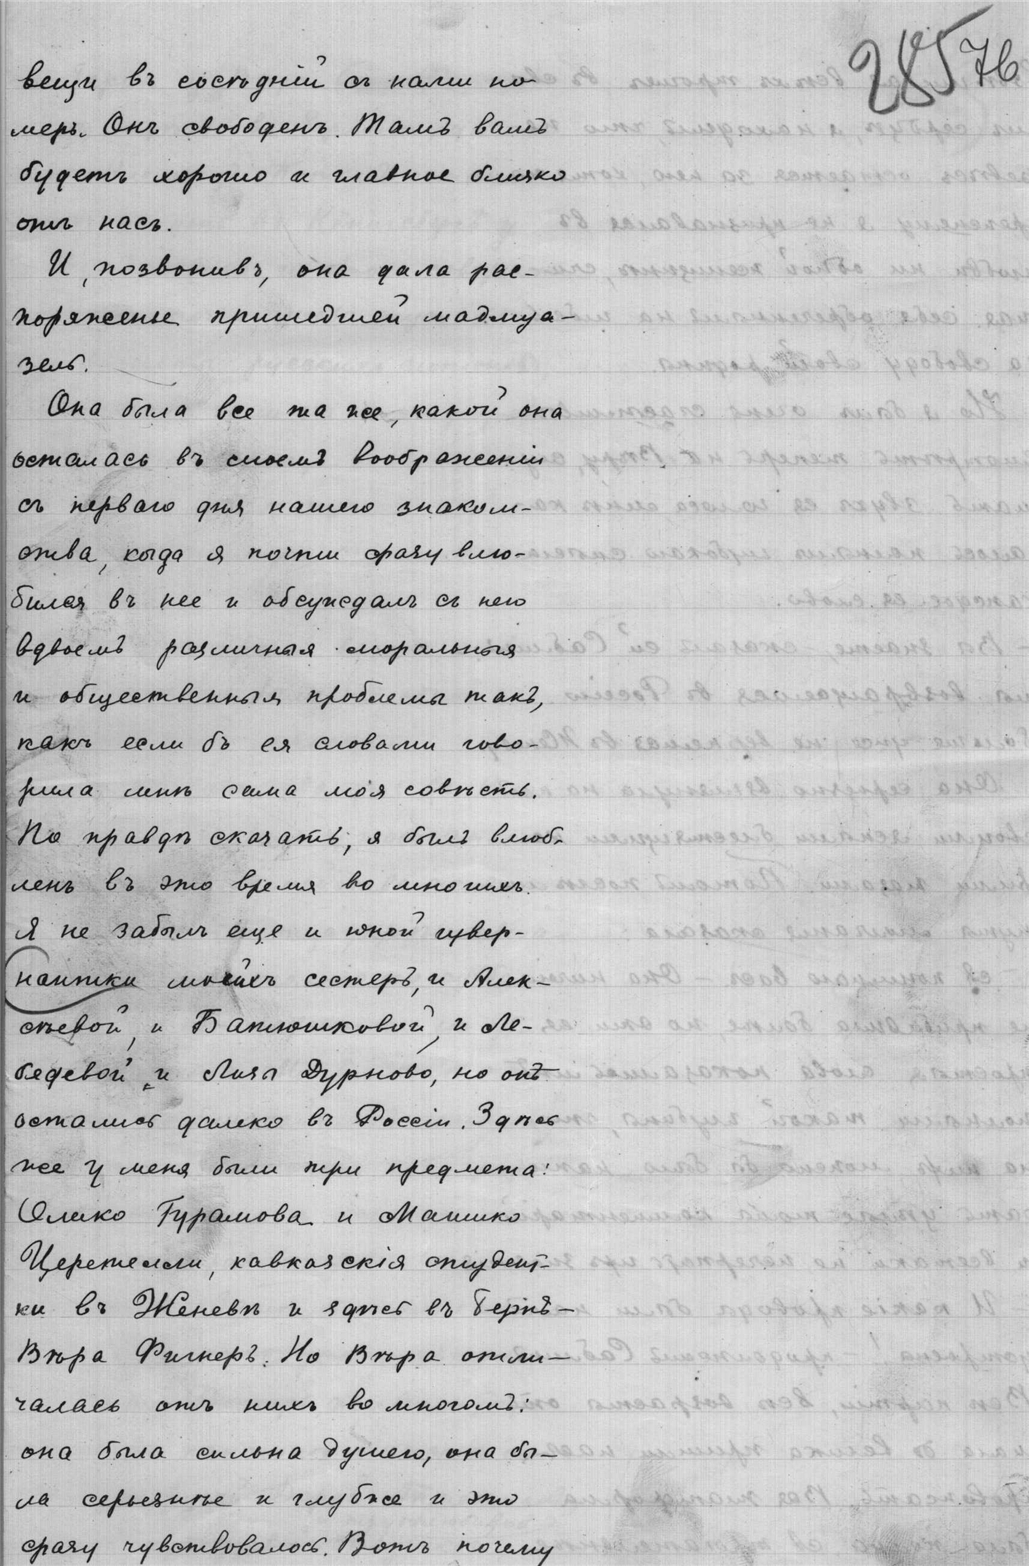 285 76
вещи въ сосѣдній съ нами но-
меръ. Онъ свободенъ. Тамъ вамъ
будетъ хорошо и главное близко
отъ насъ.
И, позвонивъ, она дала рас-
поряженье пришедшей мадмуа-
зель.
Она была все та же, какой она
осталась въ моемъ воображеніи
съ перваго дня нашего знаком-
ства, когда я почти сразу влю-
бился въ нее и обсуждалъ съ нею
вдвоемъ различныя моральныя
и общественныя проблемы такъ,
какъ если бъ ея словами гово-
рила мнѣ сама моя совѣсть.
По правдѣ сказать, я былъ влюб-
ленъ въ это время во многихъ.
Я не забылъ еще и юной гувер-
нантки моихъ сестеръ, и Алек-
сѣевой, и Батюшковой, и Ле-
бедевой и Лизы Дурново, но онѣ
остались далеко въ Россіи. Здѣсь
же у меня были три предмета:
Олико Гурамова и Машико
Церетелли, кавказскія студент-
ки въ Женевѣ и здѣсь въ Бернѣ—
Вѣра Фигнеръ. Но Вѣра отли-
чалась отъ нихъ во многомъ:
она была сильна душею, она бы-
ла серьезнѣе и глубже и это
сразу чувствовалось. Вотъ почему